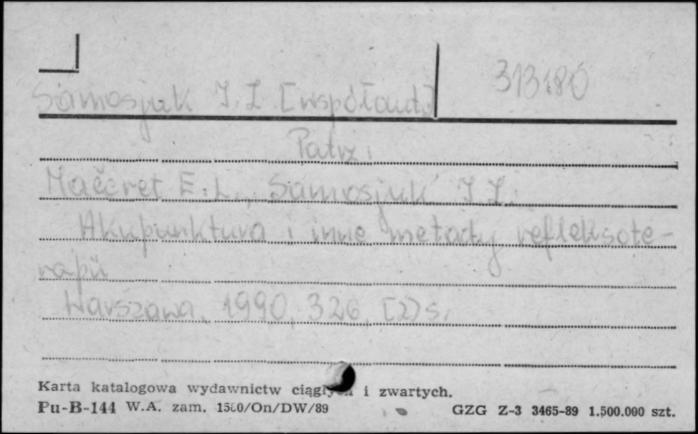 313180
Samosjuk I. Z. [współaut.]
Patrz:
Mačeret E. L., Samosjuk I. Z.
Akupunktura i inne metody refleksote-
rapii
Warszawa, 1990, 326, [2] s.
Karta katalogowa wydawnictw ciągłych i zwartych.
Pu-B-144 W.A. zam. 1580/On/DW/89 GZG Z-3 3465-89 1.500.000 szt.